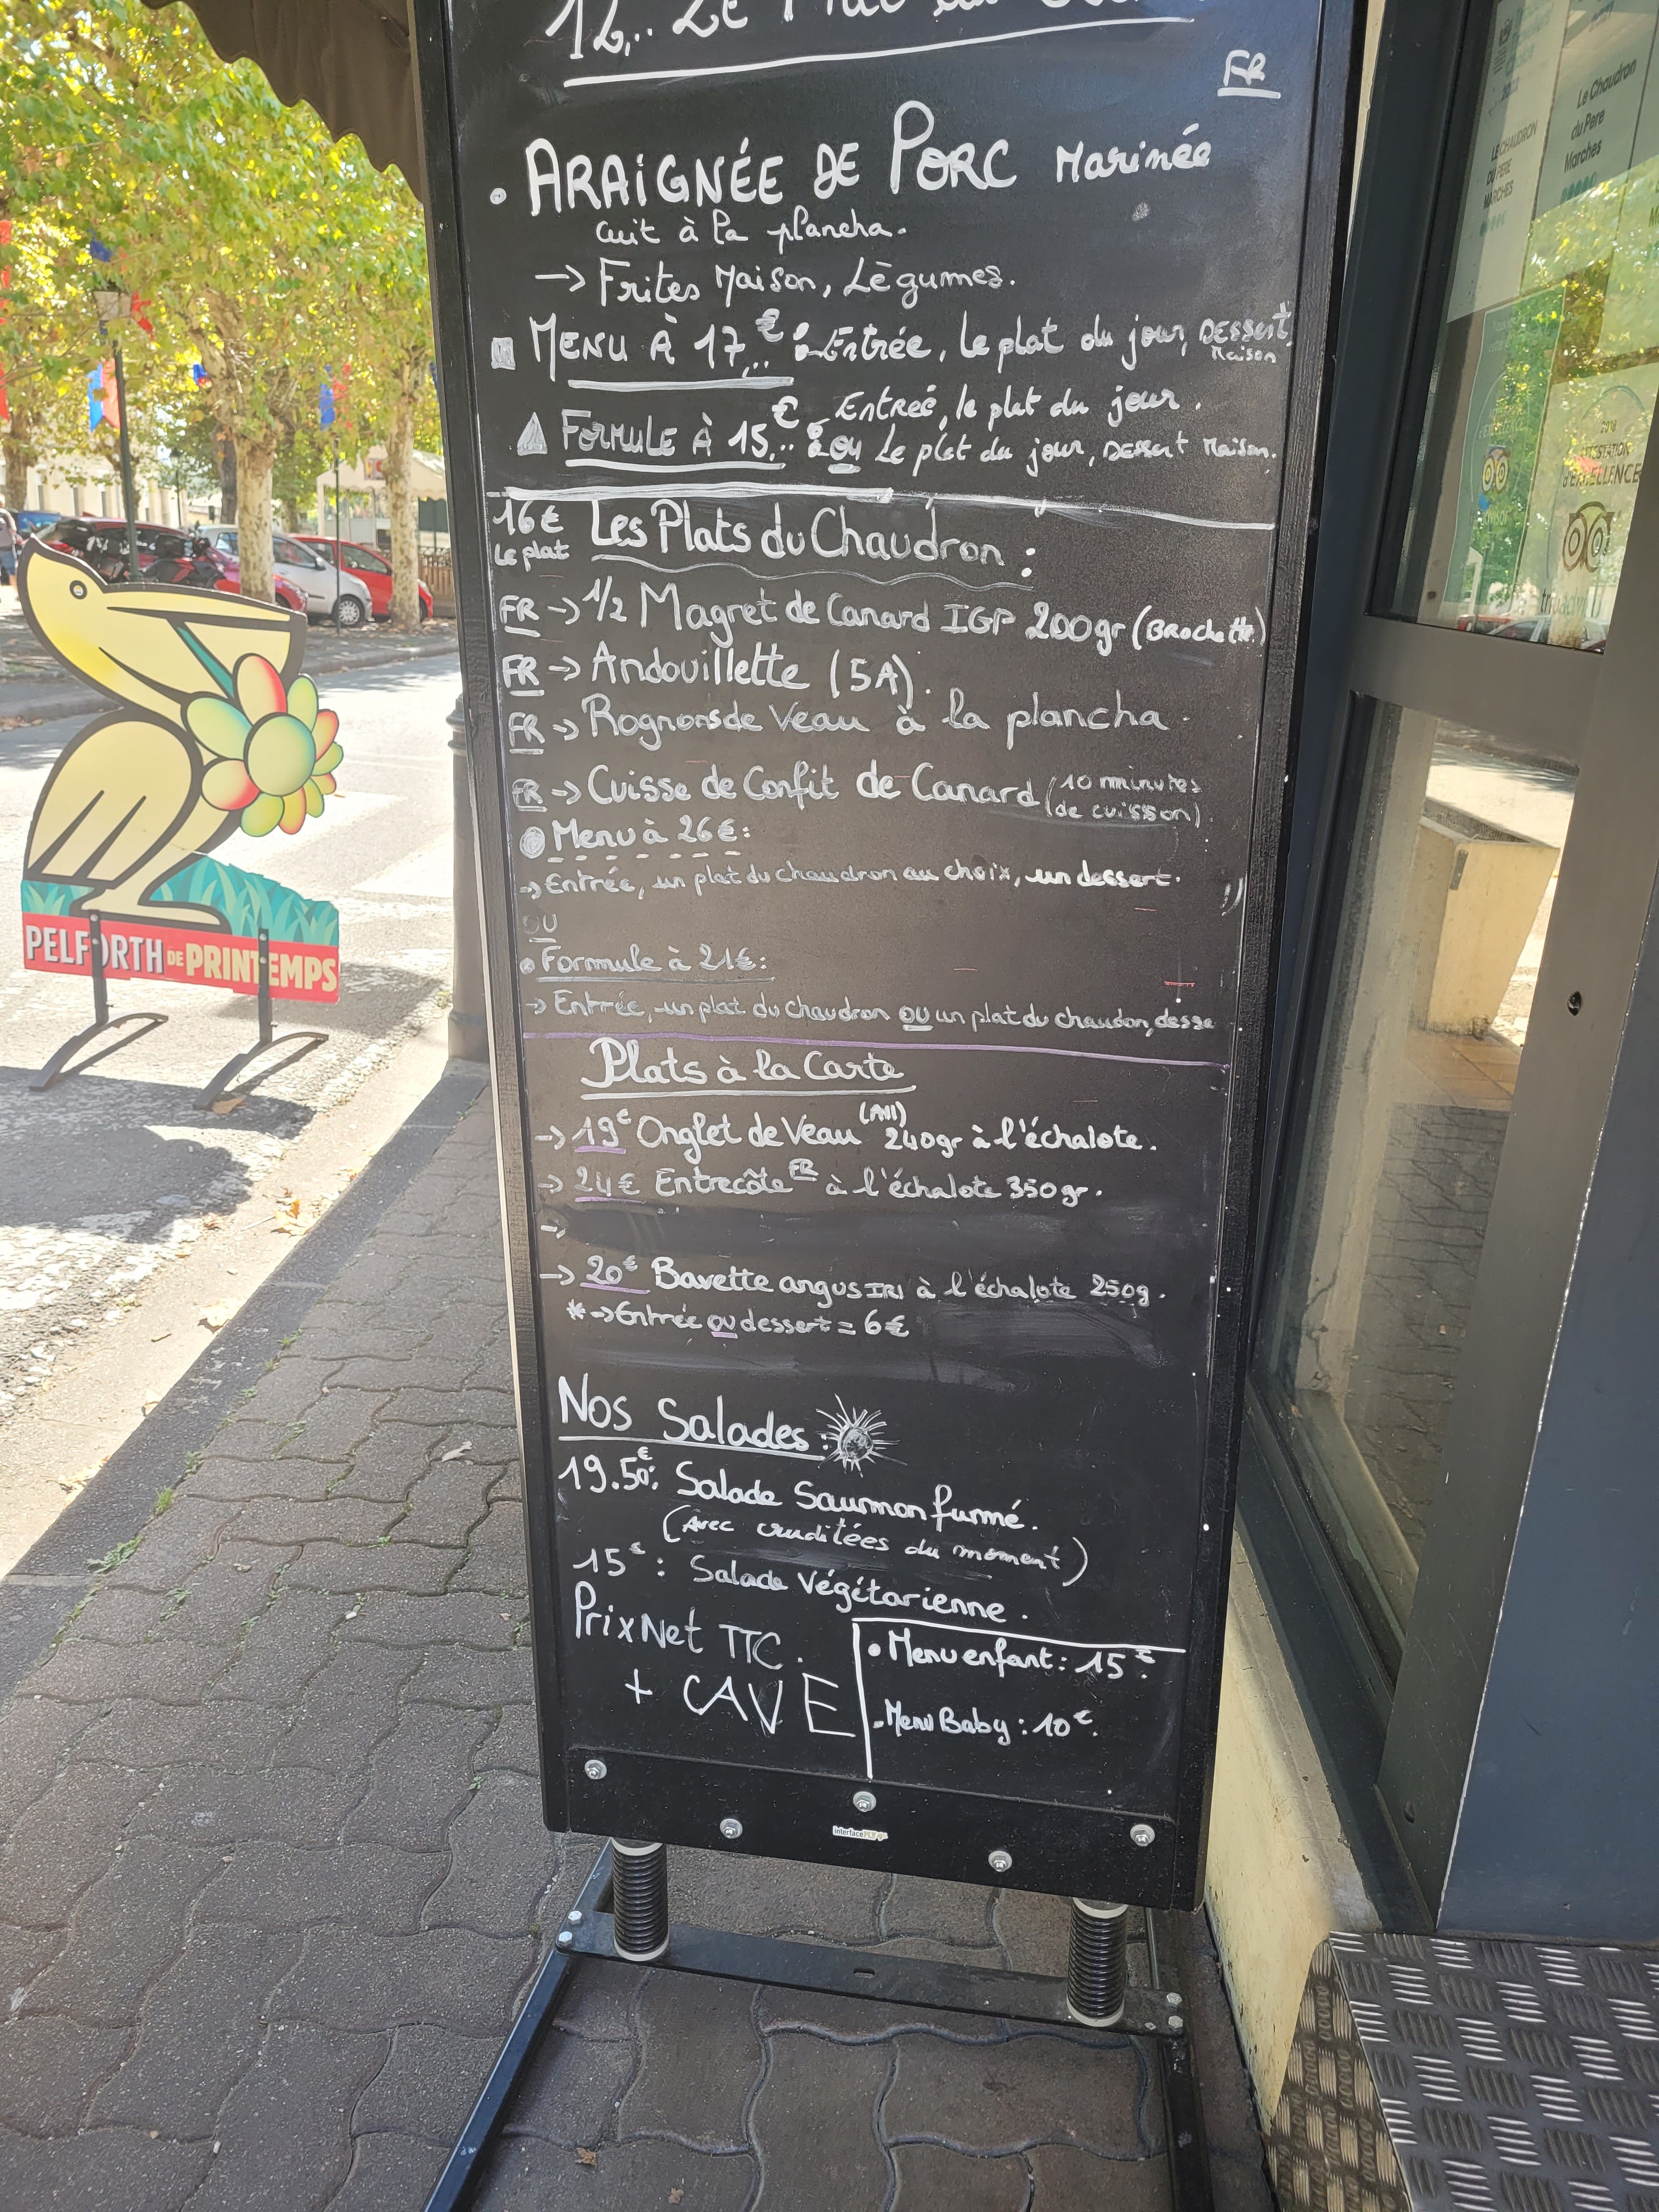 12,.. Le Plat du
FR
• ARAiGNÉE DE PORC Marinée
cuit à la plancha.
→ Frites Maison, Lègumes.
MENU À 17,..€ : Entrée, le plat du jour, DESSERT
Maison
Entreé, le plat du jour.
FORMULE À 15,..€ : ou Le plat du jour, DESSERT Maison.
16€ Les Plats du Chaudron :
Le plat
FR → 1/2 Magret de Canard IGP 200gr (BROchette)
FR → Andouillette (5A).
FR → Rognons de Veau à la plancha.
FR → Cuisse de Confit de Canard (10 minutes
de cuisson).
Menu à 26€:
→ Entrée, un plat du chaudron au choix, un dessert.
OU
• Formule à 21€:
→ Entrée, un plat du chaudron OU un plat du chaudon, desse
Plats à la Carte
→ 19€ Onglet de Veau (All) 240gr à l'échalote.
→ 24€ Entrecôte FR à l'échalote 350gr.
→
→ 20€ Bavette angus IRI à l'échalote 250g.
* → Entrée ou dessert = 6€
Nos Salades :
19.50€: Salade Saumon fumé.
(Avec crudiTées du moment)
15€ : Salade Végétarienne.
Prix Net TTC.
+ CAVE
• Menu enfant : 15€.
- Menu Baby : 10€.
PELFORTH DE PRINTEMPS
LE CHAUDRON
DU PERE
MARCHES
Le Chaudron
du Pere
Marches